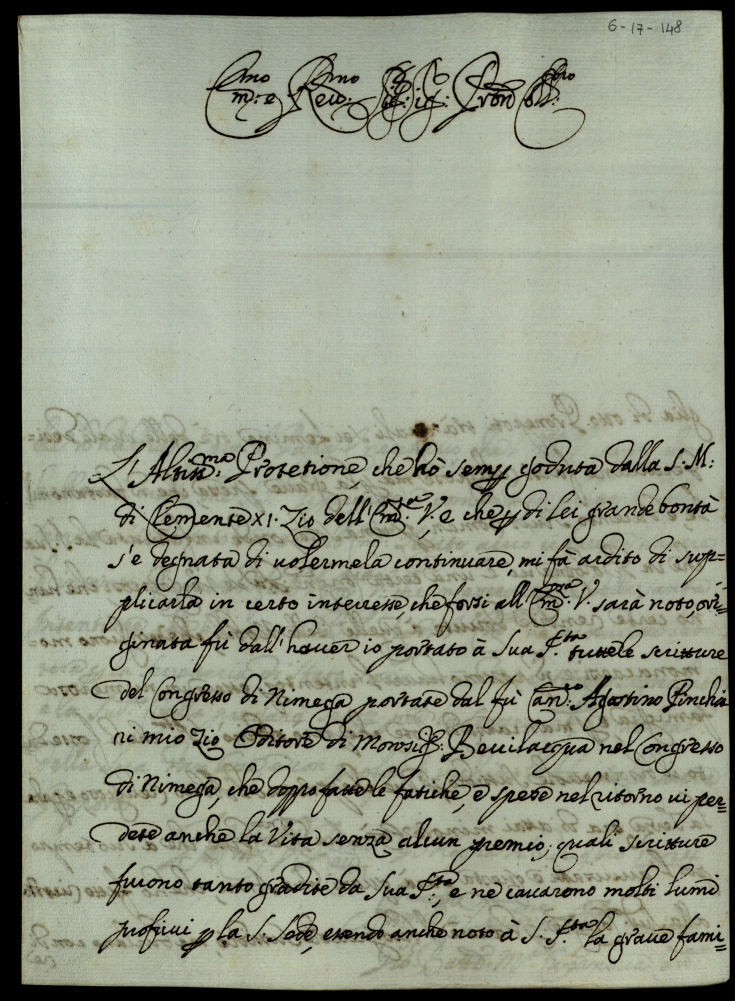 6-17-148
Em.mo e Rev.mo Sig.r Sig.r Pron Col.mo
L'Altiss.ma Protetione, che hò semp goduta dalla S. M:
di Clemente XI. Zio dell'Em.za V., e che p di lei grande bontà
s'è degnata di volermela continuare, mi fà ardito di sup=
plicarla in certo interesse, che forsi all'Em.za V. sarà noto, ori=
ginata fù dall'haver io portato à Sua S.tà tutte le scritture
del Congresso di Nimega portate dal fù Can.co Agostino Pinchia
ri mio Zio Editore di Monsig.r Bevilacqua nel Congresso
di Nimega, che doppo fatte le fatiche, e spese nel ritorno vi per=
dete anche la Vita senza alcun premio; quali scritture
furono tanto gradite da Sua S.tà, e ne cavarono molti lumi
profiui p la S. Sede, essendo anche noto à S. S.tà la grave fami=